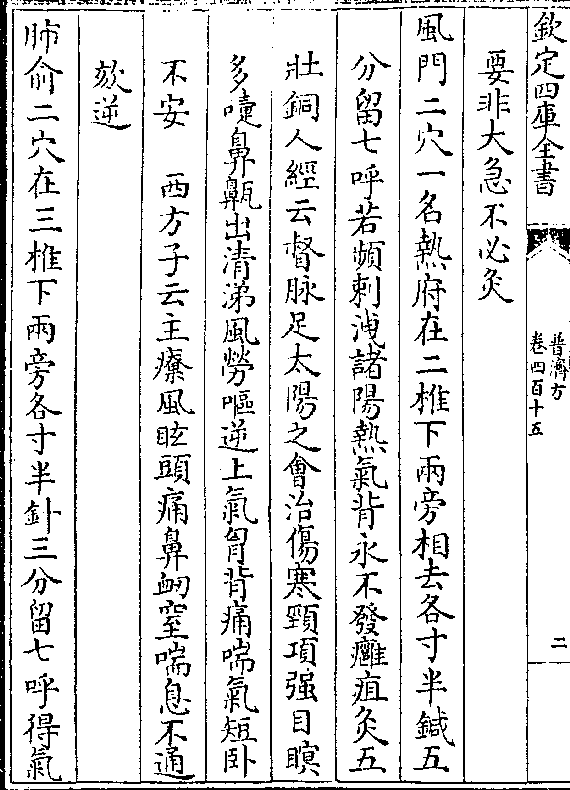 欽定四庫全書
普濟方
卷四百十五
二
要非大急不必灸
風門二穴一名熱府在二椎下兩旁相去各寸半鍼五
分留七呼若頻刺洩諸陽熱氣背永不發癰疽灸五
壯銅人經云督脉足太陽之會治傷寒頸項强目瞑
多嚏鼻鼽出清涕風勞嘔逆上氣胷背痛喘氣短卧
不安　西方子云主療風眩頭痛鼻衂窒喘息不通
欬逆
肺俞二穴在三椎下兩旁各寸半針三分留七呼得氣